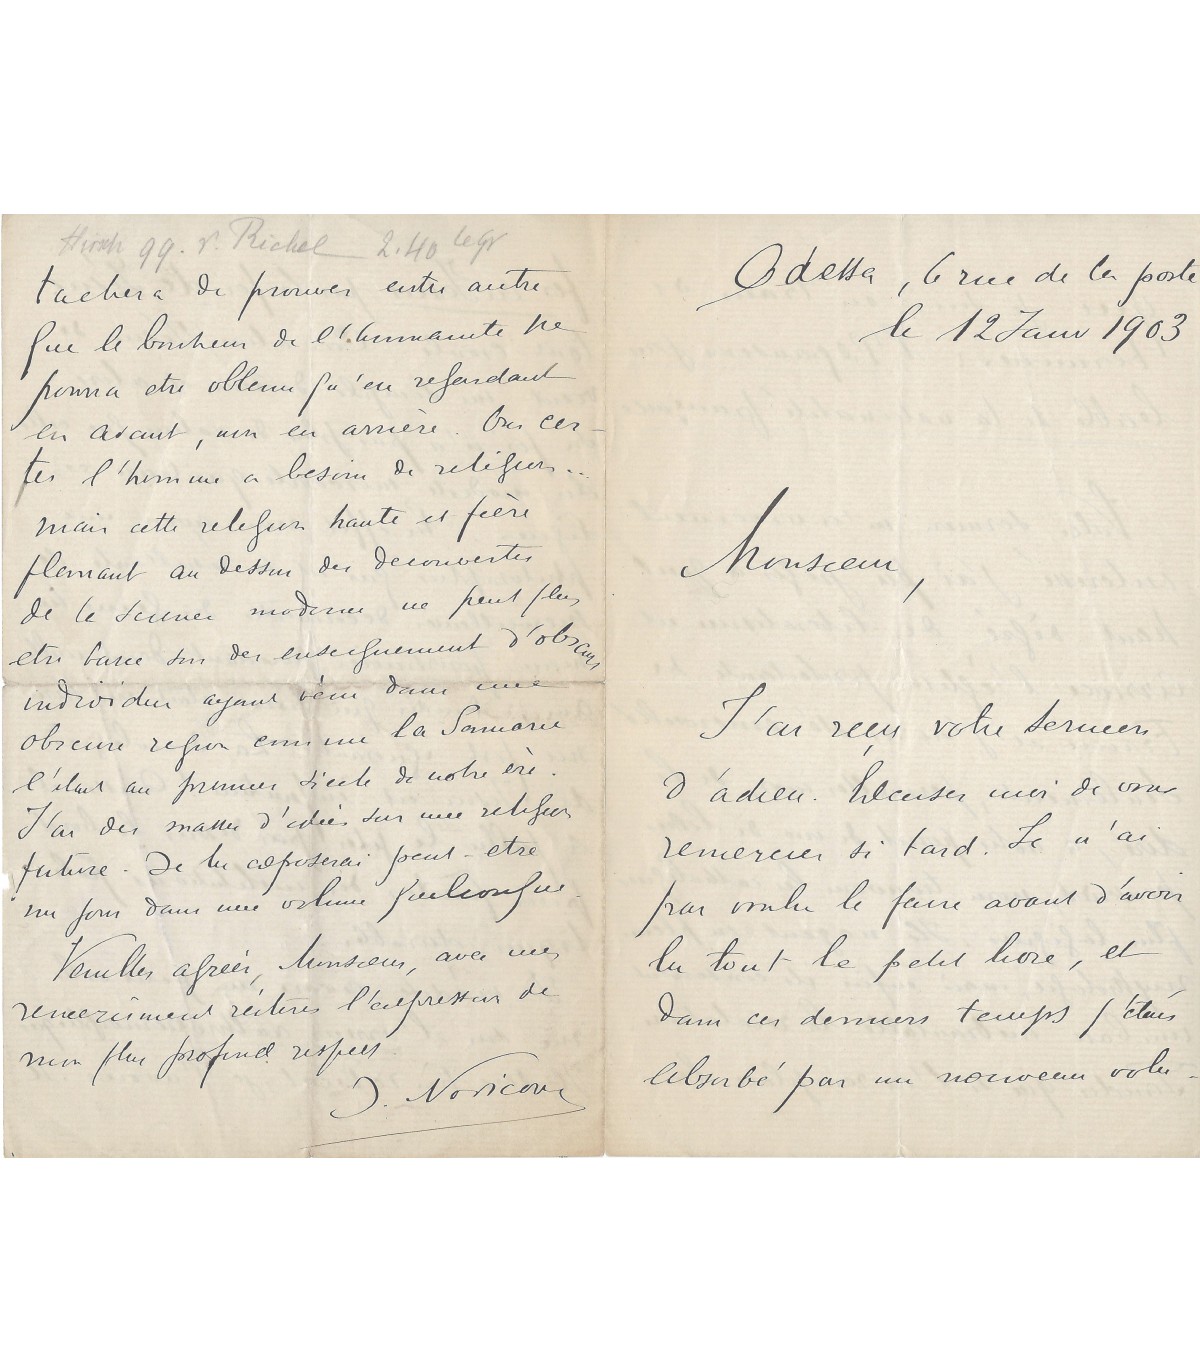 Odessa, 6 rue de la poste
le 12 Janv 1903
Monsieur,
J'ai reçu votre sermon
d'adieu. Excusez moi de vous
remercier si tard. Je n'ai
pas voulu le faire avant d'avoir
lu tout le petit livre, et
dans ces derniers temps j'étais
absorbé par un nouveau volu-
99. r. Richel 2.40
tachera de prouver entre autre
que le bonheur de l'humanite ne
pourra etre obtenu qu'en regardant
en avant, non en arrière. Oui cer-
tes l'homme a besoin de religion..
mais cette religion haute et fière
planant au dessus des decouvertes
de la science moderne ne peut plus
etre basee sur des enseignement d'obscurs
individus ayant vécu dans une
obscure region comme la Samarie
l'etait au premier siecle de notre ère.
J'ai des masses d'idées sur une religion
future. Je les exposerai peut-etre
un jour dans une volume quelconque.
Veuillez agréer, Monsieur, avec mes
remerciment réiteres l'expression de
mon plus profond respect
J. Novicow